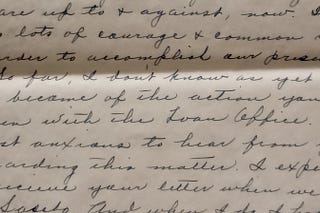 are up to & against, now. I
lots of courage & common
order to accomplish our
So far, I dont know as yet
become of the action you
with the Loan Office.
anxious to hear from
arding this matter. I expe
receive your letter when we
And when I do I